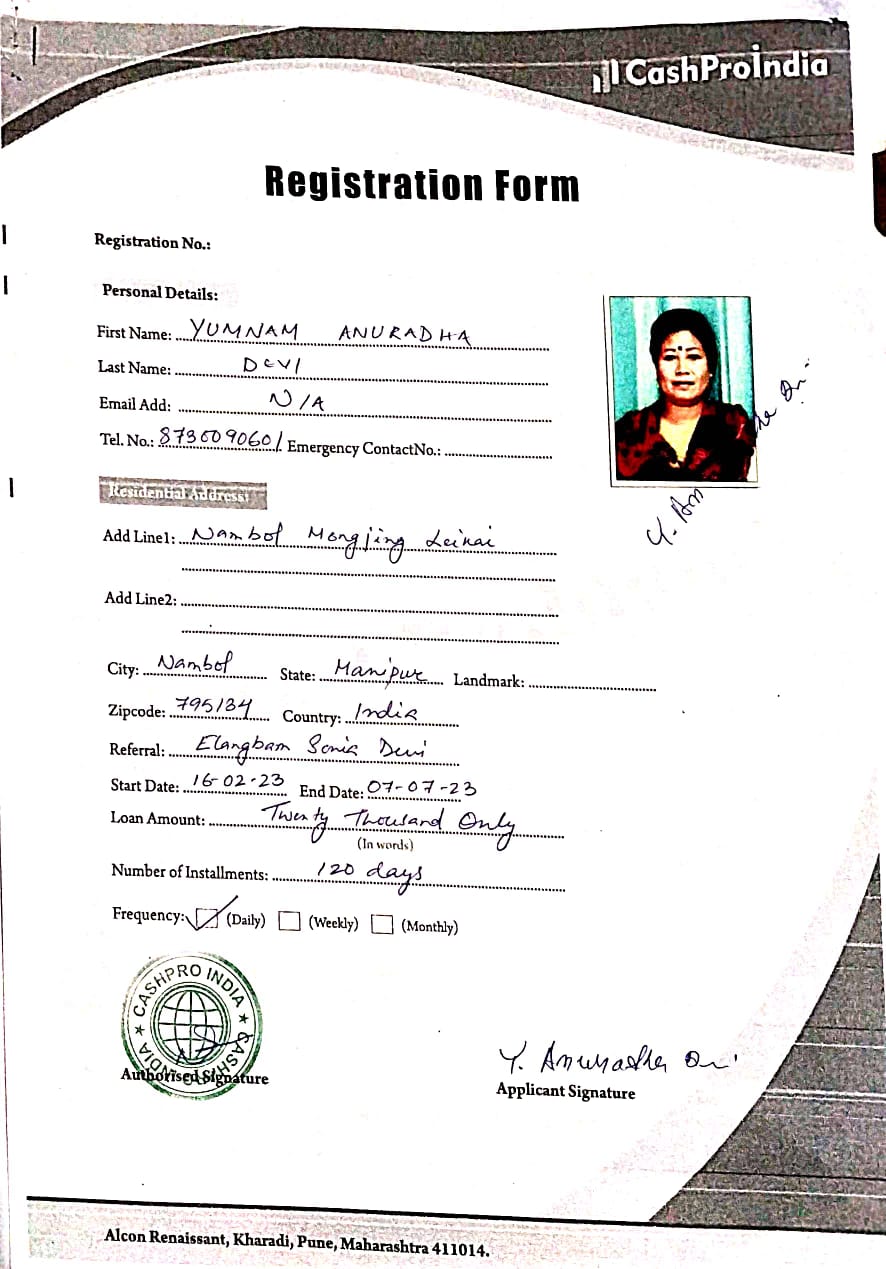 CashProIndia
Registration Form
Registration No.:
Personal Details:
First Name: YUMNAM ANURADHA
Last Name: DEVI
Email Add: N/A
Tel. No.: 8736090601 Emergency ContactNo.:
Y. An he Dvi
Residential Address:
Add Line1: Nambol Mongjing Leikai
Add Line2:
City: Nambol State: Manipur Landmark:
Zipcode: 795134 Country: India
Referral: Elangbam Sonia Devi
Start Date: 16-02-23 End Date: 07-07-23
Loan Amount: Twenty Thousand Only
(In words)
Number of Installments: 120 days
Frequency: (Daily) (Weekly) (Monthly)
CASHPRO INDIA ★ CASHPRO INDIA ★
Authorised Signature
Y. Anuradha Dvi
Applicant Signature
Alcon Renaissant, Kharadi, Pune, Maharashtra 411014.